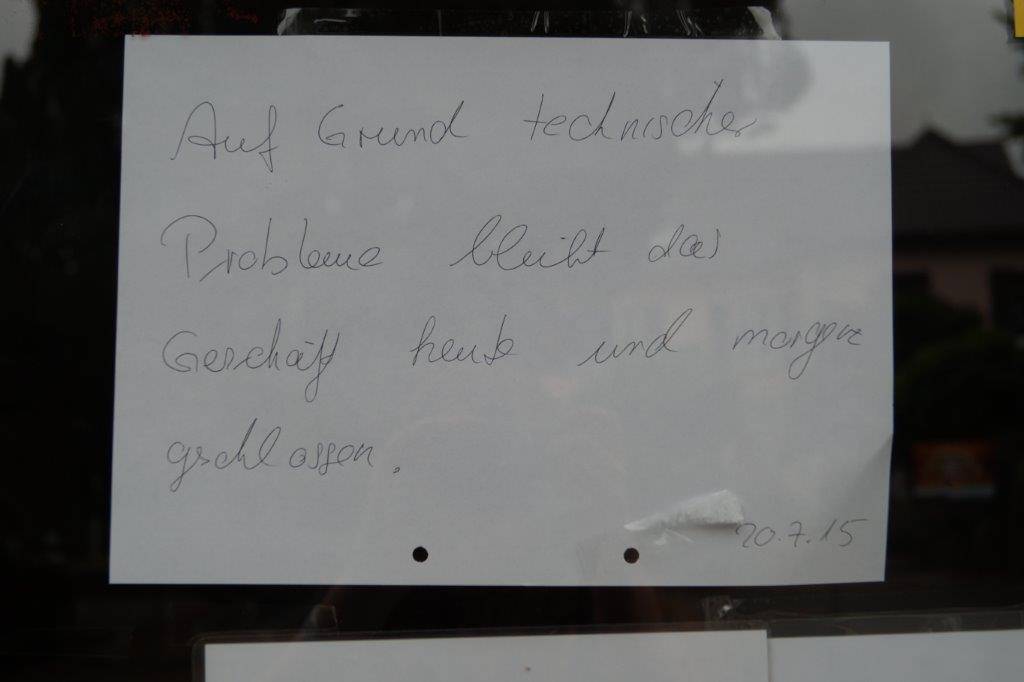 Auf Grund technischer
Probleme bleibt das
Geschäft heute und morgen
gschlossen.
20.7.15